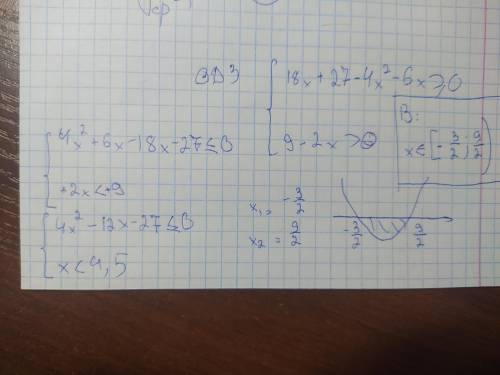 ОДЗ { 18x + 27 - 4x² - 6x ≥ 0
9 - 2x > 0
В:
x ∈ [-3/2; 9/2)
{ 4x² + 6x - 18x - 27 ≤ 0
+2x < +9
{ 4x² - 12x - 27 ≤ 0
x < 4,5
x₁ = -3/2
x₂ = 9/2
-3/2 9/2